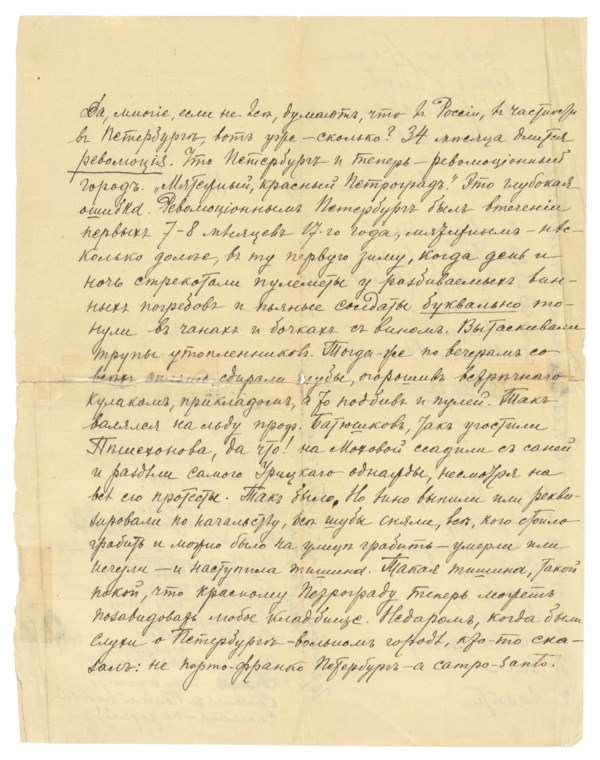 Да, многіе, если не всѣ, думаютъ, что въ Россіи, въ частности
въ Петербургѣ, вотъ уже – сколько? 34 мѣсяца длится
революція. Что Петербургъ и теперь – революціонный
городъ. „Мятежный, красный Петроградъ." Это глубокая
ошибка. Революціоннымъ Петербургъ былъ втеченіи
первыхъ 7-8 мѣсяцевъ 17-го года, мятежнымъ – нѣс-
колько дольше, въ ту первую зиму, когда день и
ночь стрекотали пулеметы у разбиваемыхъ вин-
ныхъ погребовъ и пьяные солдаты буквально то-
нули въ чанахъ и бочкахъ съ виномъ. Вытаскивали
трупы утопленниковъ. Тогда-же по вечерамъ со
всѣхъ сдирали шубы, огорошивъ встрѣчнаго
кулакомъ, прикладомъ, а то подбивъ и пулей. Такъ
валялся на льду проф. Батюшковъ, такъ угостили
Пѣшехонова, да что! на Моховой ссадили съ саней
и раздѣли самого Урицкаго однажды, несмотря на
всѣ его протесты. Такъ было. Но вино выпили или рекви-
зировали по начальству, всѣ шубы сняли, всѣ, кого стоило
грабить и можно было на улицѣ грабить – умерли или
исчезли – и наступила тишина. Такая тишина, такой
покой, что красному Петрограду теперь можетъ
позавидовать любое кладбище. Недаромъ, когда были
слухи о Петербургѣ – вольномъ городѣ, кто-то ска-
залъ: не порто-франко Петербургъ – а campo-santo.